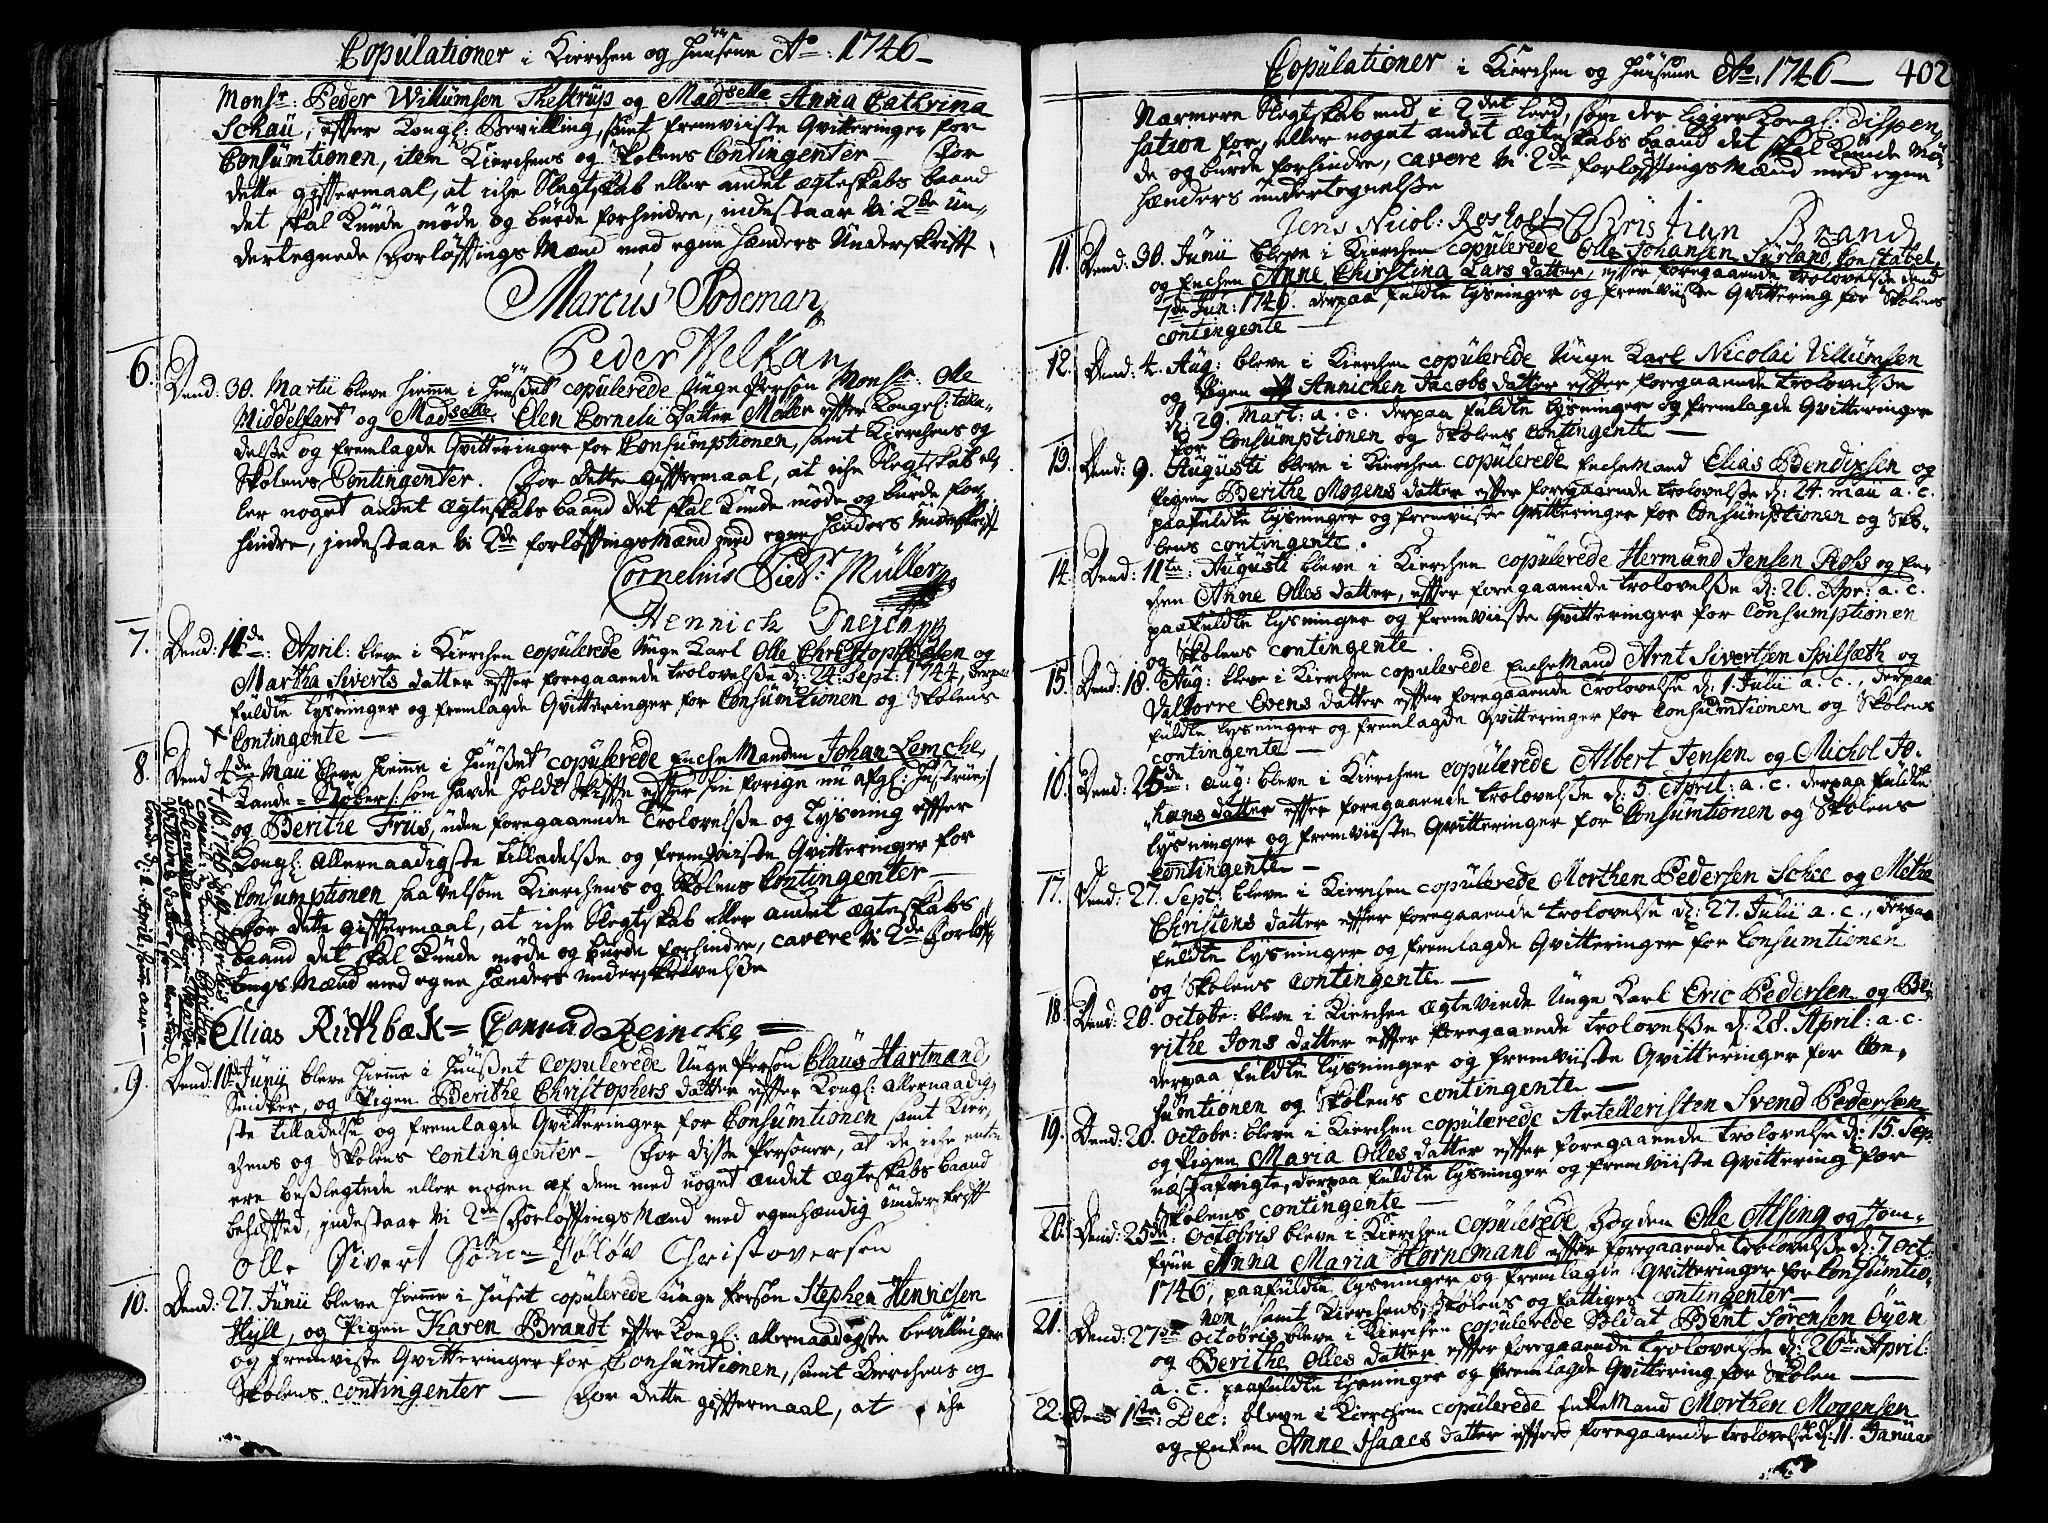 Copulationer i Kierchen og Huusene Ao: 1746
Monsr: Peder Willumsen Thestrup og Madselle Anna Cathrina
Schau, efter Kongl: Bevilling, samt fremviiste Qvitteringer for
Consumtionen, item Kierchens og Skolens Contingenter — For
dette gifftermaal, at iche Slegtskab eller andet ægteskabs baand
det skal Kunde møde og burde forhindre, indestaar Vi 2de Un,,
dertegnede Forløftings Mænd med egne Hænders Underskrifft
Marcus Sodeman
Peder Welkan
6. Dend: 30. Martii bleve hiemme i Huuset copulerede Unge Person Monsr: Olle
Middelfart og Madselle: Elen Cornelii Datter Møler efter Kongl: tilla,,
delsse og fremlagde Qvitteringer for Consumptionen, samt Kierchens og
Skolens Contingenter. For dette gifftermaal, at iche Slegtskab el,
ler noget andet ægteskabs baand det skal Kunde møde og burde for,,
hindre, indestaar Vi 2de forløfftings Mænd med egne Hænders Underskrifft
Cornelius Müller
Hennich
7. Dend: 14de: April: bleve i Kierchen copulerede Unge Karl Olle Christophersen og
Martha Siverts Datter efter foregaaende trolovelsse d: 24. Sept: 1744, derpaa
fuldte lysninger og fremlagde Qvitteringer for Consumtionen og Skolens
Contingente —
8. Dend 4de Maii bleve hiemme i Huuset copulerede Enche Manden Johan Lemche,
Kande-Støber /:som hafde holdt Skiffte effter sin forige nu afgl: Hustrue:/
og Berithe Friis, uden foregaaende Trolovelsse og Lysning efter
Kongl: allernaadigste tilladelsse og fremviiste Qvitteringer for
Consumptionen saavelsom Kierchens og Skolens Contingenter —
For dette gifftermaal, at iche Slegtskab eller andet ægteskabs
baand det skal Kunde møde og burde forhindre, cavere Vi 2de Forløff,
tings Mænd med egne Hænders underskrivelsse
Ellias Ruthbæk = Conrad Reincke =
9. Dend: 10de Junii bleve hiemme i Huuset copulerede Unge Person Claus Hartmand,
Snidker, og Pigen Berithe Christophers Datter efter Kongl: allernaadig,
ste tilladelse og fremlagde Qvitteringer for Consumtionen samt Kier,
chens og Skolens Contingenter — For disse Personer, at de iche ere
ere besslegtede eller nogen af dem med noget andet ægteskabs baand
behefftet, indestaar Vi 2de Forløfftings Mænd med egenhændig Underskrifft
Olle Sivert Christoversen
10. Dend: 27. Junii bleve hiemme i Huset copulerede Unge Person Stephen Henrichsen
Hyll, og Pigen Karen Brandt efter Kongl: allernaadigste bevillinger
og fremviste Qvitteringer for Consumtionen, samt Kierchens og
Skolens contingenter — For dette gifftermaal, at iche
Copulationer i Kierchen og Huusene Ao: 1746 — 402
Nærmere Slegtskab end i 2det Leed, som der ligger Kongl: dispen,,
sation for, eller noget andet ægteskabs baand det skal Kunde mø,
de og burde forhindre, cavere Vi 2de forløfftings Mænd med egne
hænders undertegnelsse
Jens Nicol: Rosholt Christian Brand
11. Dend: 30. Junii bleve i Kierchen copulerede Olle Johansen Surland, Constabel,
og Enchen Anne Chirstina Lars Datter, efter foregaaende trolovelsse dend
7de Jun: 1746. derpaa fuldte lysninger og fremviiste Qvittering for Skolens
contingente —
12. Dend: 4. Aug: bleve i Kierchen copulerede Unge Karl Nicolai Villumsen
og Pigen Annichen Jacobs datter efter foregaaende trolovelsse
d: 29. Mart: a. c. derpaa fuldte lysninger og fremlagde Qvitteringer
for Consumptionen og Skolens contingente —
13. Dend: 9. Augusti bleve i Kierchen copulerede Enche Mand Elias Bendixsen og
Pigen Berithe Mogens datter efter foregaaende trolovelsse d: 24. maii a. c.
paafuldte lysninger og fremviiste Qvitteringer for Consumptionen og Sko,,
lens contingente.
14. Dend: 11te: Augusti bleve i Kierchen copulerede Hermand Jensen Ross og En,,
chen Anne Olles datter, efter foregaaende trolovelsse d: 26. Apr: a. c.
paafuldte lysninger og fremviiste Qvitteringer for Consumptionen
og Skolens contingente.
15. Dend: 18. Aug: bleve i Kierchen copulerede Enche Mand Arnt Sivertsen Spilsæth og
Valborre Evens datter efter foregaaende Trolovelsse d: 1. Julii a. c., derpaa
fuldte lysninger og fremlagde Qvitteringer for Consumtionen og Skolens
contingente —
16. Dend: 25de: Aug: bleve i Kierchen copulerede Albert Jensen og Michol Jo,
hans datter efter foregaaende trolovelsse d: 5. April: a. c. derpaa fuldte
lysninger og fremviiste Qvitteringer for Consumtionen og Skolens
contingente —
17. Dend: 27. Sept: bleve i Kierchen copulerede Morthen Pedersen Schee og Methe
Christens datter efter foregaaende trolovelse d: 27. Julii a. c., derpaa
fuldte lysninger og fremlagde Qvitteringer for Consumtionen
og Skolens contingente —
18. Dend: 20. octobr: bleve i Kierchen ægteviede Unge Karl Eric Pedersen og Be,
rithe Jons datter efter foregaaende trolovelsse d: 28. April: a. c.
derpaa fuldte lysninger og fremviiste Qvitteringer for Con,,
sumtionen og Skolens contingente —
19. Dend: 20. Octobr: bleve i Kierchen copulerede Artelleristen Svend Pedersen
og Pigen Maria Olles datter efter foregaaende trolovelse d: 15. Sep,
næstafvigte, derpaa fuldte lysninger og fremviiste Qvittering for
Skolens contingente —
20. Dend: 25de: Octobris bleve i Kierchen copulerede Fogden Olle Alsing og Jom,,
frue Anna Maria Hornemand efter foregaaende trolovelsse d: 7 Oct:
1746, paafuldte lysninger og fremlagde Qvitteringer for Consumtio,
nen, samt Kierchens, Skolens og fattiges contingenter —
21. Dend: 27de octobris bleve i Kierchen copulerede Soldat Bent Sörensen Öyen
og Berithe Olles datter efter foregaaende trolovelsse d: 26de April:
a. c. paafuldte lysninger og fremlagde Qvittering for Skolen —
22. Dend 1ste: Dec: bleve i Kierchen copulerede Enke Mand Morthen Mogensen
og Enken Anne Isaacs datter efter foregaaende trolovelsse d: 11. Janua